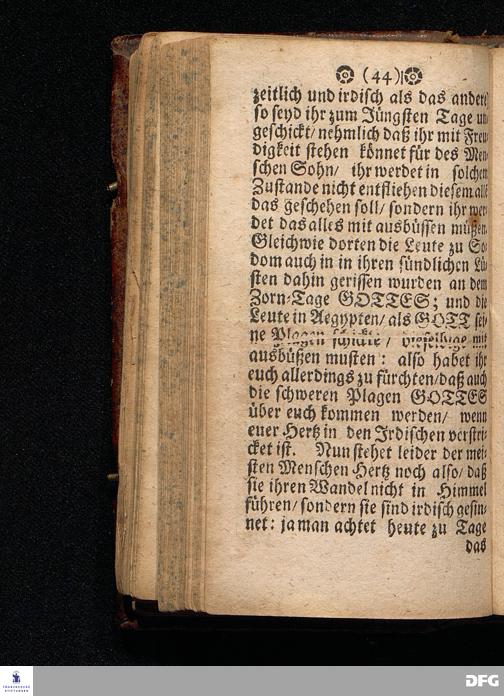 (44)
zeitlich und irdisch als das andere
so seyd ihr zum Jüngsten Tage un
geschickt/ nehmlich daß ihr mit Freu
digkeit stehen könnet für des Men
schen Sohn/ ihr werdet in solchem
Zustande nicht entfliehen diesem alle
das geschehen soll/ sondern ihr wer
det das alles mit ausbüssen müßen.
Gleichwie dorten die Leute zu So
dom auch in in ihren sündlichen Lü
sten dahin gerissen wurden an dem
Zorn-Tage GOTTES; und die
Leute in Aegypten/ als GOTT sei
ne Plagen schickte/ dieselbige mit
ausbüßen musten: also habet ihr
euch allerdings zu fürchten/ daß auch
die schweren Plagen GOTTES
über euch kommen werden/ wenn
euer Hertz in den Irdischen verstri
cket ist. Nun stehet leider der mei
sten Menschen Hertz noch also/ daß
sie ihren Wandel nicht in Himmel
führen/ sondern sie sind irdisch gesin
net: ja man achtet heute zu Tage
das
FRANCKESCHE
STIFTUNGEN
DFG